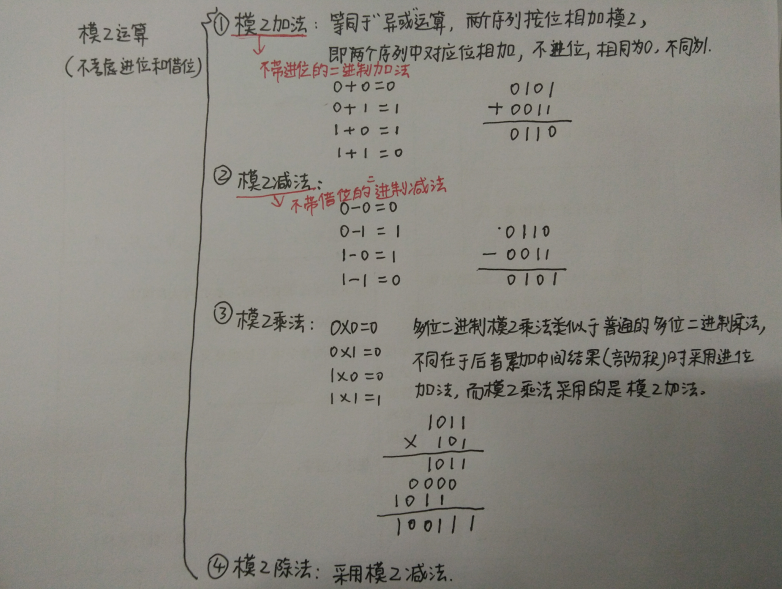 模2运算
(不考虑进位和借位)
① 模2加法: 等同于“异或”运算, 两个序列按位相加模2,
即两个序列中对应位相加, 不进位, 相同为0, 不同为1.
不带进位的二进制加法
0+0=0
0+1=1
1+0=1
1+1=0
0101
+ 0011
0110
② 模2减法:
不带借位的二进制减法
0-0=0
0-1=1
1-0=1
1-1=0
0110
- 0011
0101
③ 模2乘法:
0×0=0
0×1=0
1×0=0
1×1=1
多位二进制模2乘法类似于普通的多位二进制乘法,
不同在于后者累加中间结果(部份积)时采用进位
加法, 而模2乘法采用的是模2加法。
1011
× 101
1011
0000
1011
100111
④ 模2除法: 采用模2减法.